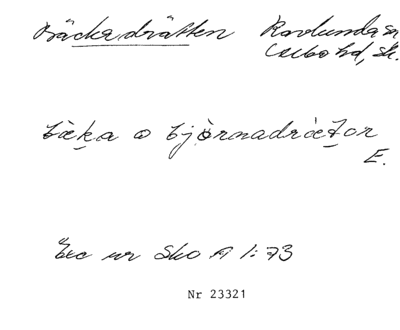 Bäckadrätten Ravlunda sn
Albo hd, Sk.
bèka o bjò̱rnadrȧetor
E.
Exc ur Sko A 1:73
Nr 23321